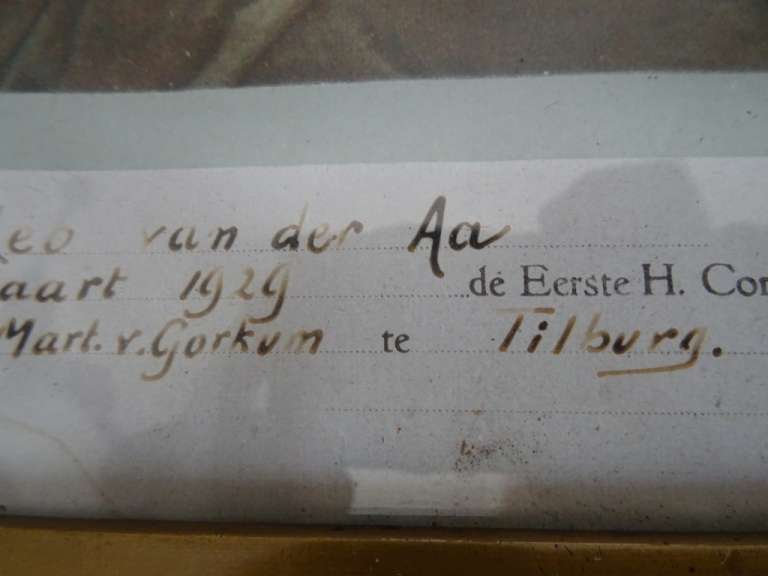 Leo van der Aa
aart 1929 de Eerste H. Cor
Mart. v. Gorkum te Tilburg.